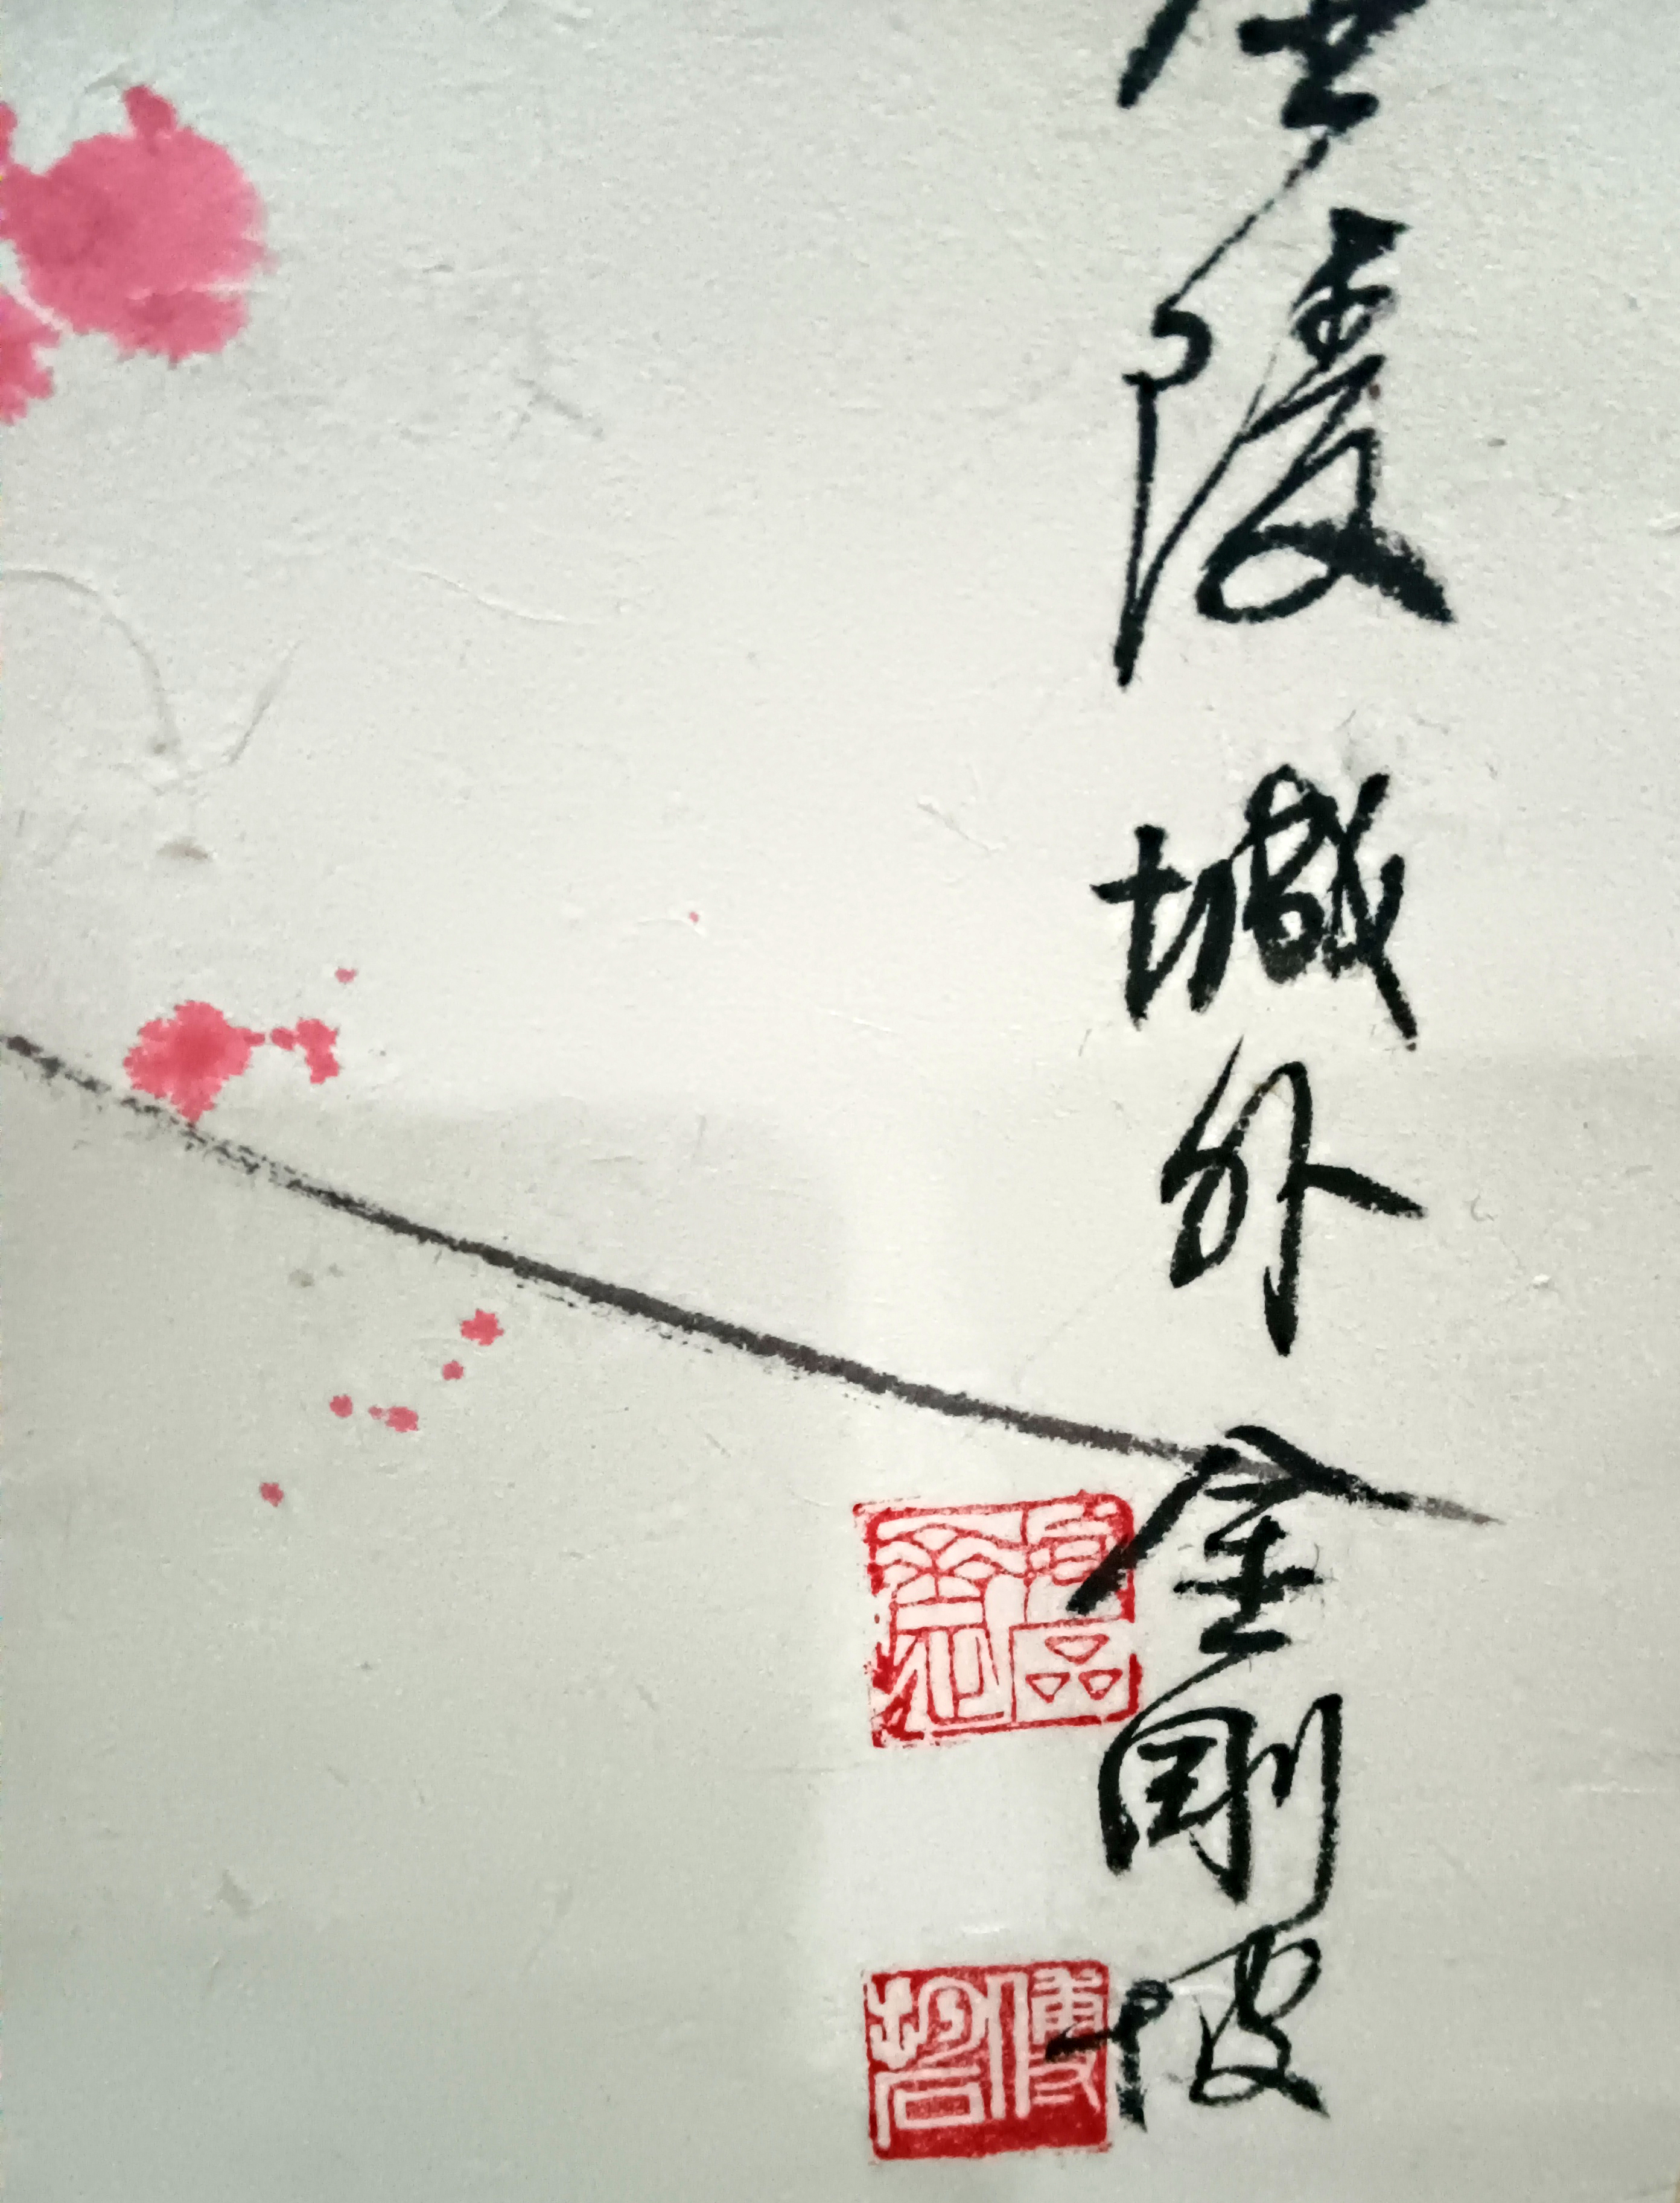 金陵城外金剛坡
傅抱石